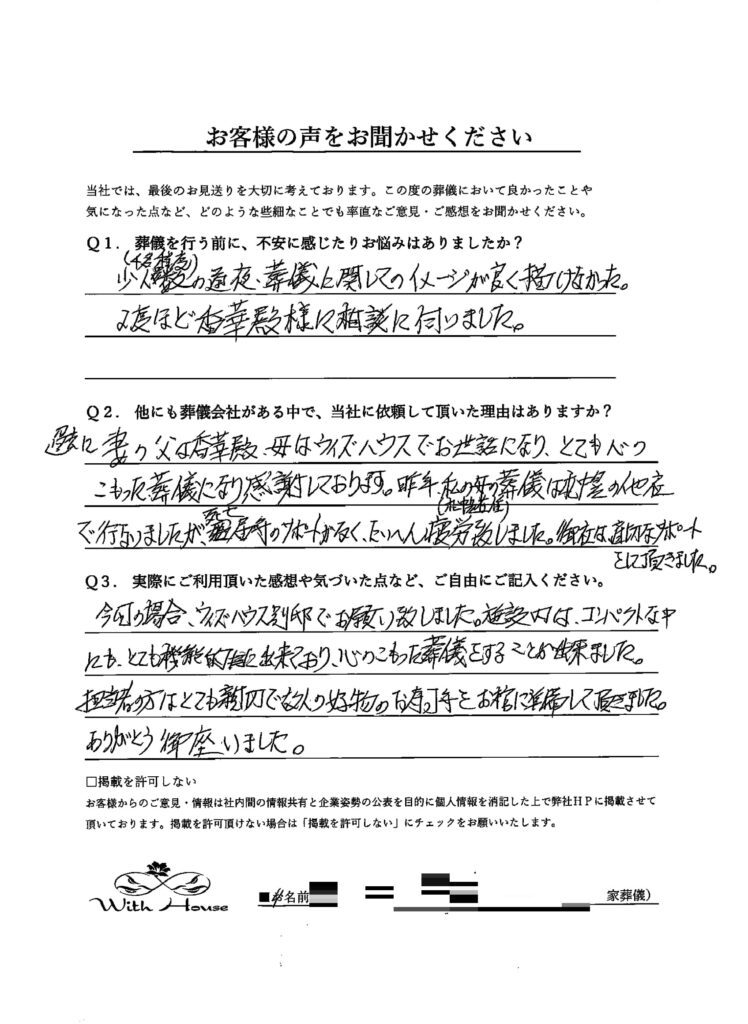 お客様の声をお聞かせください
当社では、最後のお見送りを大切に考えております。この度の葬儀において良かったことや
気になった点など、どのような些細なことでも率直なご意見・ご感想をお聞かせください。
Q1. 葬儀を行う前に、不安に感じたりお悩みはありましたか？
少人数の通夜、葬儀に関してのイメージが良く描けなかった。
2度ほど香華殿様に相談に伺りました。
Q2. 他にも葬儀会社がある中で、当社に依頼して頂いた理由はありますか？
過去に妻の父は香華殿、母はウィズハウスでお世話になり、とても心の
こもった葬儀になり感謝しております。昨年、私の母の葬儀は の他社
で行ないましたが、死亡 のサポートがなく、たいへん疲労 しました。御社は適切なサポート
をして頂きました。
Q3. 実際にご利用頂いた感想や気づいた点など、ご自由にご記入ください。
今回の場合、ウィズハウス別邸でお願い致しました。施設内は、コンパクトな中
にも、とても機能的に出来ており、心のこもった葬儀をすることが出来ました。
担当者の方はとても親切で故人の好物のお寿司をお棺に準備して頂きました。
ありがとう御座いました。
□掲載を許可しない
お客様からのご意見・情報は社内間の情報共有と企業姿勢の公表を目的に個人情報を消記した上で弊社HPに掲載させて
頂いております。掲載を許可頂けない場合は「掲載を許可しない」にチェックをお願いいたします。
With House
名前
家葬儀）